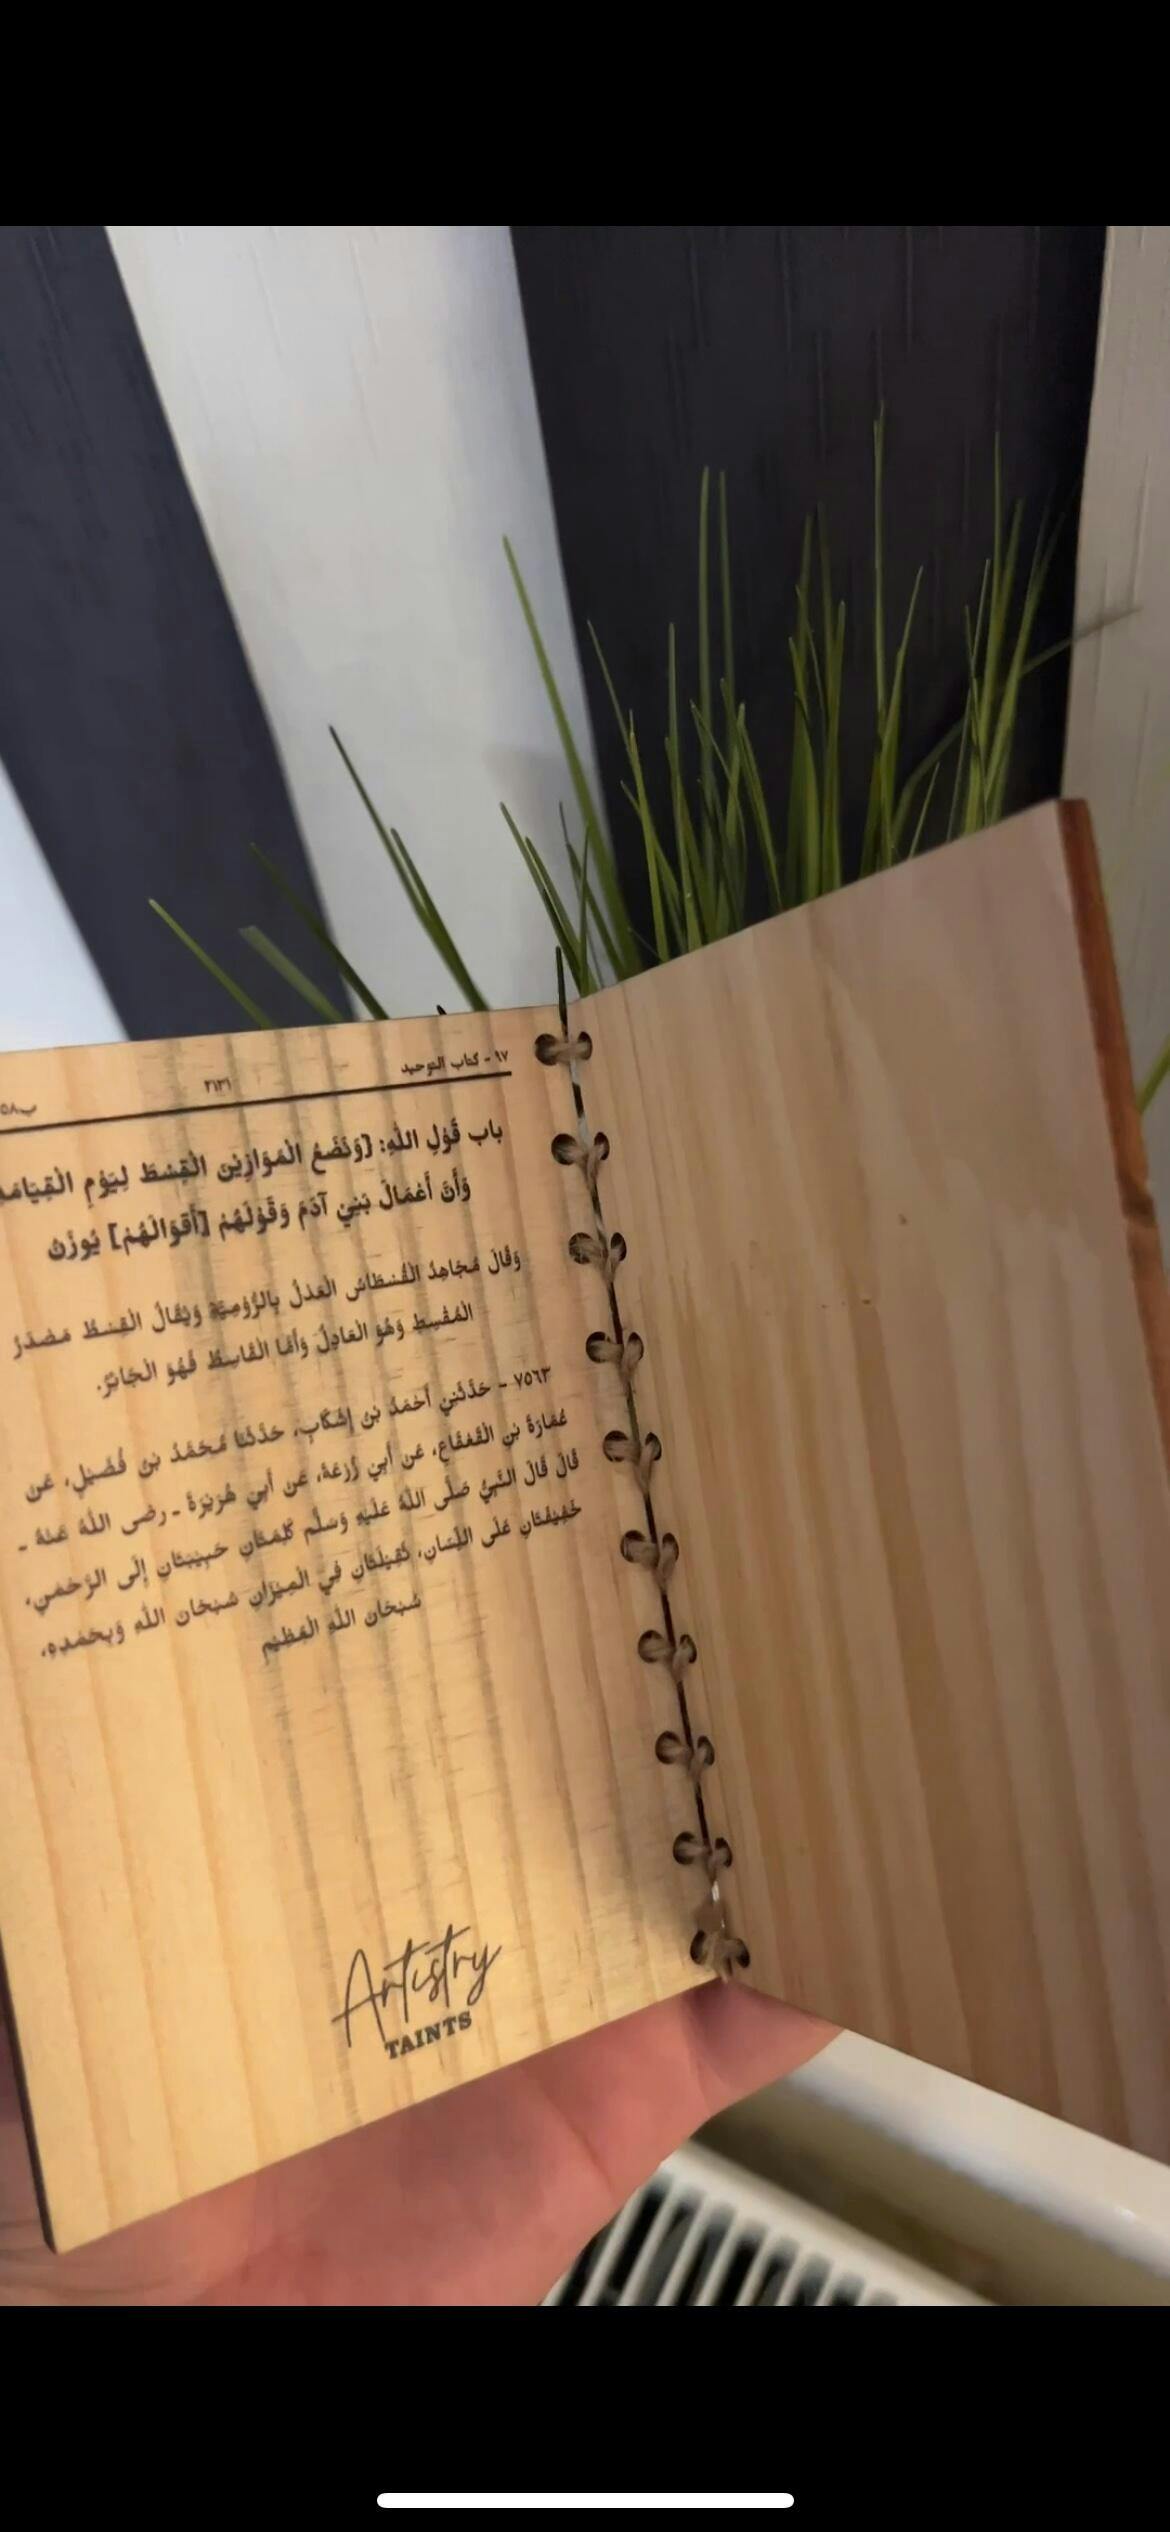 ٩٧ - كتاب التوحيد
٣١٣١
ب٥٨
باب قَوْلِ اللَّهِ: {وَنَضَعُ الْمَوَازِيْنَ الْقِسْطَ لِيَوْمِ الْقِيَامَةِ
وَأَنَّ أَعْمَالَ بَنِيْ آدَمَ وَقَوْلَهُمْ [أَقْوَالَهُمْ] يُوزَنُ
وَقَالَ مُجَاهِدٌ الْقُسْطَاسُ الْعَدْلُ بِالرُّوْمِيَّةِ وَيُقَالُ الْقِسْطُ مَصْدَرُ
الْمُقْسِطِ وَهُوَ الْعَادِلُ وَأَمَّا الْقَاسِطُ فَهُوَ الْجَائِرُ.
٧٥٦٣ - حَدَّثَنِيْ أَحْمَدُ بْنُ إِشْكَابٍ، حَدَّثَنَا مُحَمَّدُ بْنُ فُضَيْلٍ، عَنْ
عُمَارَةَ بْنِ الْقَعْقَاعِ، عَنْ أَبِيْ زُرْعَةَ، عَنْ أَبِيْ هُرَيْرَةَ ـ رضى اللَّهُ عَنْهُ ـ
قَالَ قَالَ النَّبِيُّ صَلَّى اللَّهُ عَلَيْهِ وَسَلَّم كَلِمَتَانِ حَبِيْبَتَانِ إِلَى الرَّحْمَنِ،
خَفِيْفَتَانِ عَلَى اللِّسَانِ، ثَقِيْلَتَانِ فِي الْمِيْزَانِ سُبْحَان اللَّهِ وَبِحَمْدِهِ،
سُبْحَان اللَّهِ الْعَظِيْمِ
Artistry
TAINTS